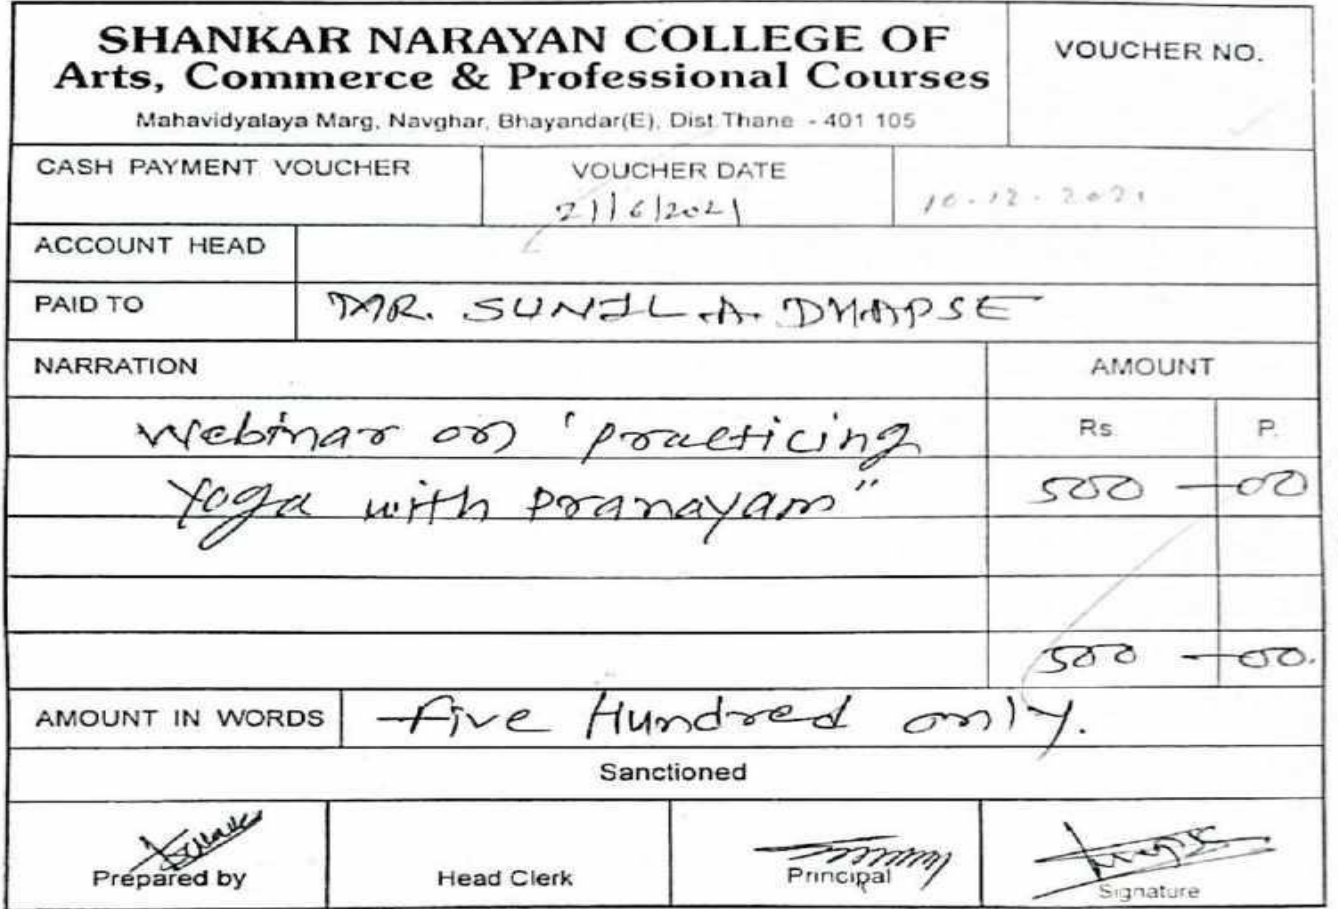 SHANKAR NARAYAN COLLEGE OF
Arts, Commerce & Professional Courses
Mahavidyalaya Marg, Navghar, Bhayandar(E), Dist.Thane - 401 105
VOUCHER NO.
CASH PAYMENT VOUCHER
VOUCHER DATE
21/6/2021
10.12.2021
ACCOUNT HEAD
PAID TO
MR. SUNIL A. DHAPSE
NARRATION
AMOUNT
Rs.
P.
Webinar on 'practicing
Yoga with pranayam"
500 - 00
500 - 00.
AMOUNT IN WORDS
Five Hundred only.
Sanctioned
Prepared by
Head Clerk
Principal
Signature